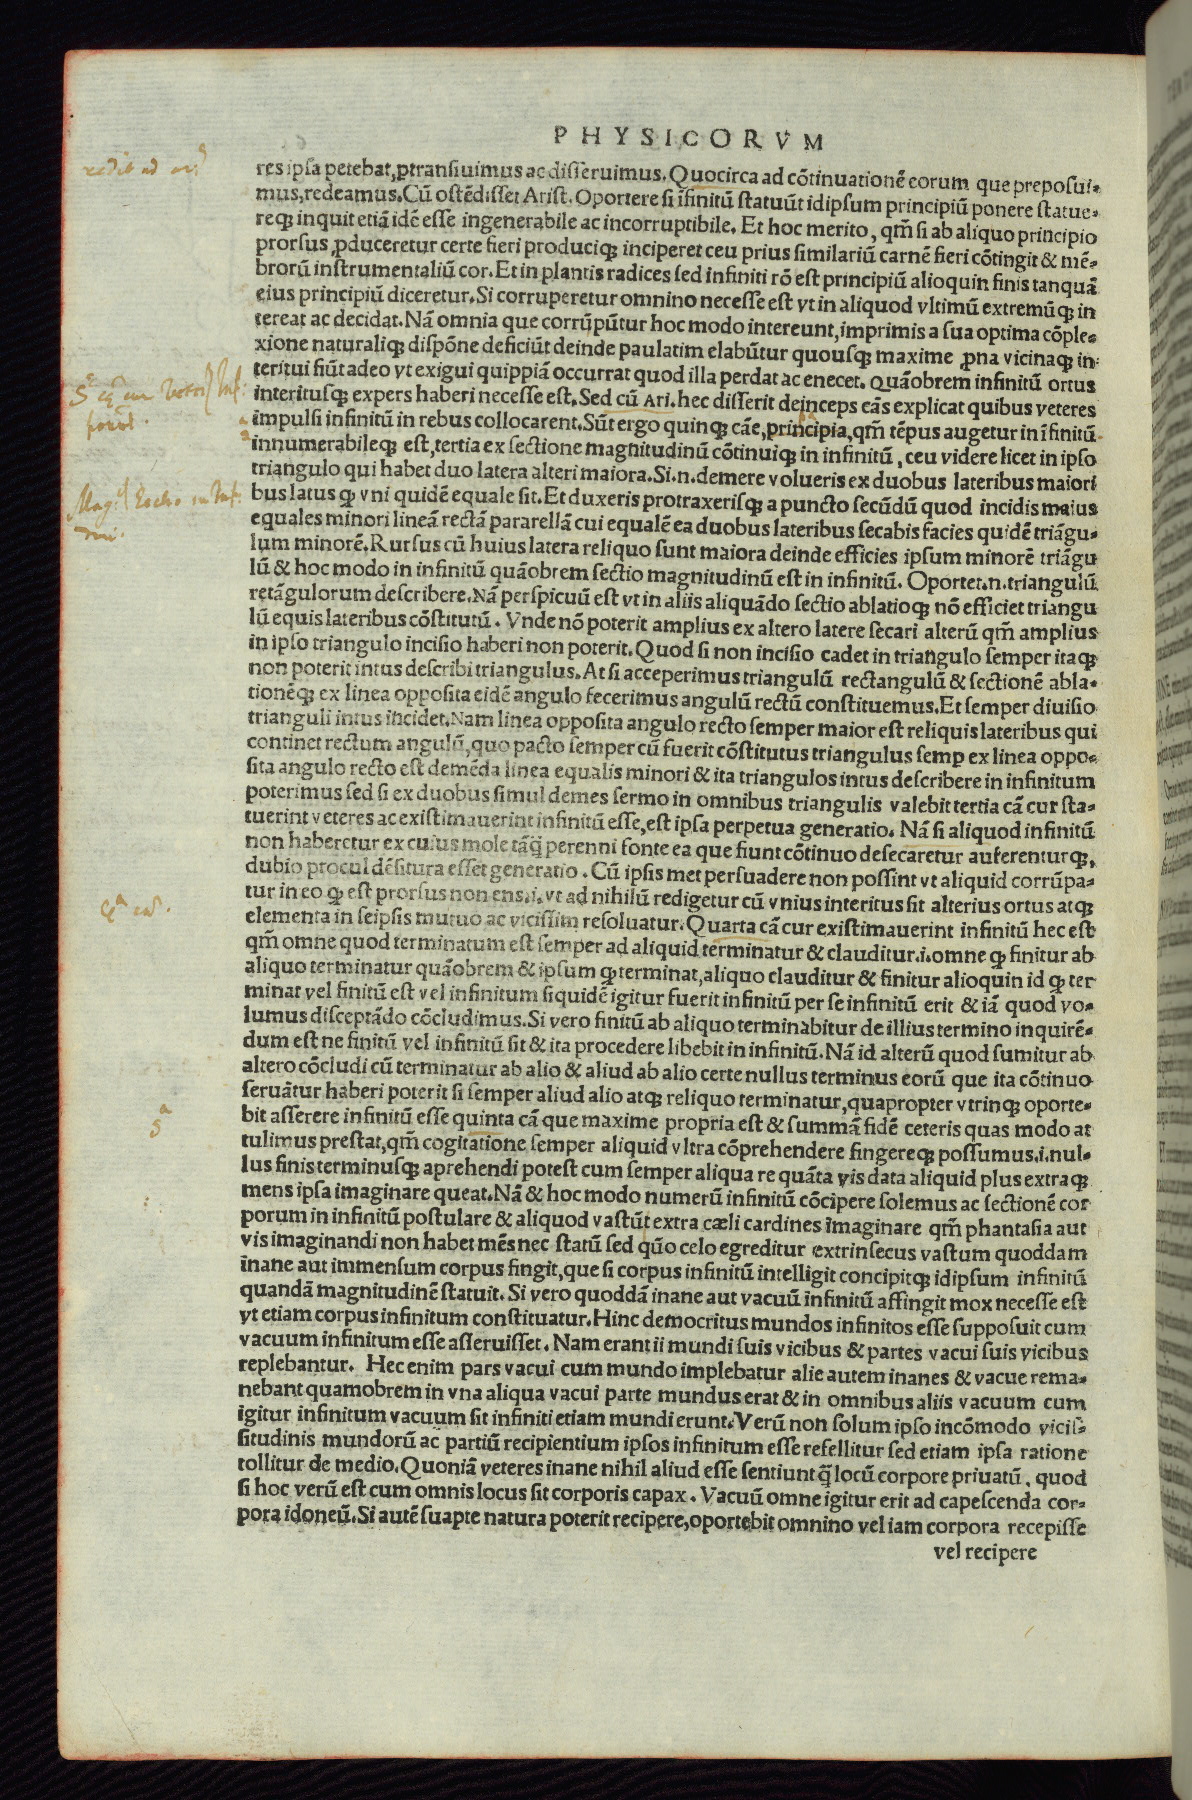 PHYSICORVM
res ipsa petebat, ꝑtransiuimus ac disseruimus. Quocirca ad cõtinuationẽ eorum que preposui-
mus, redeamus. Cũ ostẽdisset Arist. Oportere si ĩfinitũ statuũt idipsum principiũ ponere statue-
reqꝫ inquit etiã idẽ esse ingenerabile ac incorruptibile. Et hoc merito, qm̃ si ab aliquo principio
prorsus, ꝓduceretur certe fieri produciqꝫ inciperet ceu prius similariũ carnẽ fieri cõtingit & mẽ-
brorũ instrumentaliũ cor. Et in plantis radices sed infiniti rõ est principiũ alioquin finis tanquã
eius principiũ diceretur. Si corruperetur omnino necesse est vt in aliquod vltimũ extremũqꝫ in
tereat ac decidat. Nã omnia que corrũpũtur hoc modo intereunt, imprimis a sua optima cõple-
xione naturaliqꝫ dispõne deficiũt deinde paulatim elabũtur quousqꝫ maxime ꝓna vicinaqꝫ in-
teritui fiũt adeo vt exigui quippiã occurrat quod illa perdat ac enecet. Quãobrem infinitũ ortus
interitusqꝫ expers haberi necesse est. Sed cũ Ari. hec disserit deinceps eãs explicat quibus veteres
impulsi infinitũ in rebus collocarent. Sũt ergo quinqꝫ cãe, principia, qm̃ tẽpus augetur in ĩfinitũ
innumerabileqꝫ est, tertia ex sectione magnitudinũ cõtinuiqꝫ in infinitũ, ceu videre licet in ipso
triangulo qui habet duo latera alteri maiora. Si .n. demere volueris ex duobus lateribus maiori
bus latus qꝫ vni quidẽ equale sit. Et duxeris protraxerisqꝫ a puncto secũdũ quod incidis maius
equales minori lineã rectã pararellã cui equalẽ ea duobus lateribus secabis facies quidẽ triãgu-
lum minorẽ. Rursus cũ huius latera reliquo sunt maiora deinde efficies ipsum minorẽ triãgu
lũ & hoc modo in infinitũ quãobrem sectio magnitudinũ est in infinitũ. Oportet .n. triangulũ
retãgulorum describere. Nã perspicuũ est vt in aliis aliquãdo sectio ablatioqꝫ nõ efficiet triangu
lũ equis lateribus cõstitutũ. Vnde nõ poterit amplius ex altero latere secari alterũ qm̃ amplius
in ipso triangulo incisio haberi non poterit. Quod si non incisio cadet in triangulo semper itaqꝫ
non poterit intus describi triangulus. At si acceperimus triangulũ rectangulũ & sectionẽ abla-
tionẽqꝫ ex linea opposita eidẽ angulo fecerimus angulũ rectũ constituemus. Et semper diuisio
trianguli intus incidet. Nam linea opposita angulo recto semper maior est reliquis lateribus qui
continet rectum angulũ, quo pacto semper cũ fuerit cõstitutus triangulus semꝑ ex linea oppo-
sita angulo recto est demẽda linea equalis minori & ita triangulos intus describere in infinitum
poterimus sed si ex duobus simul demes sermo in omnibus triangulis valebit tertia cã cur sta-
tuerint veteres ac existimauerint infinitũ esse, est ipsa perpetua generatio. Nã si aliquod infinitũ
non haberetur ex cuius mole tãq̃ perenni fonte ea que fiunt cõtinuo desecaretur auferenturqꝫ,
dubio procul dẽsitura esset generatio. Cũ ipsis met persuadere non possint vt aliquid corrũpa-
tur in eo qꝫ est prorsus non ens .i. vt ad nihilũ redigetur cũ vnius interitus sit alterius ortus atqꝫ
elementa in seipsis mutuo ac vicissim resoluatur. Quarta cã cur existimauerint infinitũ hec est
qm̃ omne quod terminatum est semper ad aliquid terminatur & clauditur .i. omne qꝫ finitur ab
aliquo terminatur quãobrem & ipsum qꝫ terminat, aliquo clauditur & finitur alioquin id qꝫ ter
minat vel finitũ est vel infinitum siquidẽ igitur fuerit infinitũ per se infinitũ erit & iã quod vo-
lumus disceptãdo cõcludimus. Si vero finitũ ab aliquo terminabitur de illius termino inquirẽ-
dum est ne finitũ vel infinitũ sit & ita procedere libebit in infinitũ. Nã id alterũ quod sumitur ab
altero cõcludi cũ terminatur ab alio & aliud ab alio certe nullus terminus eorũ que ita cõtinuo
seruãtur haberi poterit si semper aliud alio atqꝫ reliquo terminatur, quapropter vtrinqꝫ oporte-
bit asserere infinitũ esse quinta cã que maxime propria est & summã fidẽ ceteris quas modo at
tulimus prestat, qm̃ cogitatione semper aliquid vltra cõprehendere fingereqꝫ possumus .i. nul-
lus finis terminusqꝫ aprehendi potest cum semper aliqua re quãta vis data aliquid plus extraqꝫ
mens ipsa imaginare queat. Nã & hoc modo numerũ infinitũ cõcipere solemus ac sectionẽ cor
porum in infinitũ postulare & aliquod vastũt extra cæli cardines imaginare qm̃ phantasia aut
vis imaginandi non habet mẽs nec statũ sed qũo celo egreditur extrinsecus vastum quoddam
inane aut immensum corpus fingit, que si corpus infinitũ intelligit concipitqꝫ idipsum infinitũ
quandã magnitudinẽ statuit. Si vero quoddã inane aut vacuũ infinitũ affingit mox necesse est
vt etiam corpus infinitum constituatur. Hinc democritus mundos infinitos esse supposuit cum
vacuum infinitum esse asseruisset. Nam erant ii mundi suis vicibus & partes vacui suis vicibus
replebantur. Hec enim pars vacui cum mundo implebatur alie autem inanes & vacue rema-
nebant quamobrem in vna aliqua vacui parte mundus erat & in omnibus aliis vacuum cum
igitur infinitum vacuum sit infiniti etiam mundi erunt. Verũ non solum ipso incõmodo vicis-
situdinis mundorũ ac partiũ recipientium ipsos infinitum esse refellitur sed etiam ipsa ratione
tollitur de medio. Quoniã veteres inane nihil aliud esse sentiunt q̃ locũ corpore priuatũ, quod
si hoc verũ est cum omnis locus sit corporis capax. Vacuũ omne igitur erit ad capescenda cor-
pora idoneũ. Si autẽ suapte natura poterit recipere, oportebit omnino vel iam corpora recepisse
vel recipere